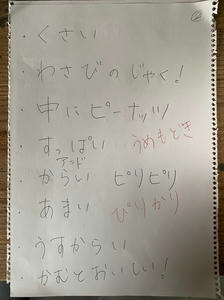 ②
・くさい
・わさびのじゃく！
・中にピーナッツ
・すっぱい うめもどき
アンド
・からい ピリピリ
・あまい ぴりかり
・うすからい
・かむとおいしい！